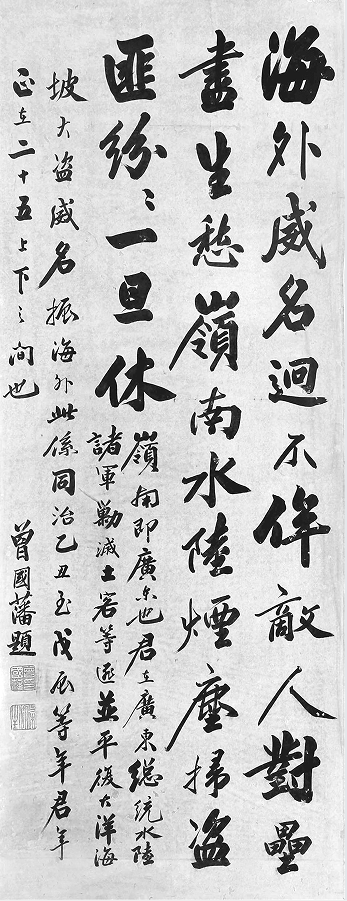 海外威名迥不侔敵人對壘
盡生愁嶺南水陸煙塵掃盜
匪紛〻一旦休
嶺南即廣东也君在廣東總統水陸
諸軍勦滅土客等匪並平復大洋海
坡大盜威名振海外此係同治乙丑至戊辰等年君年
正在二十五上下之間也
曾國藩題